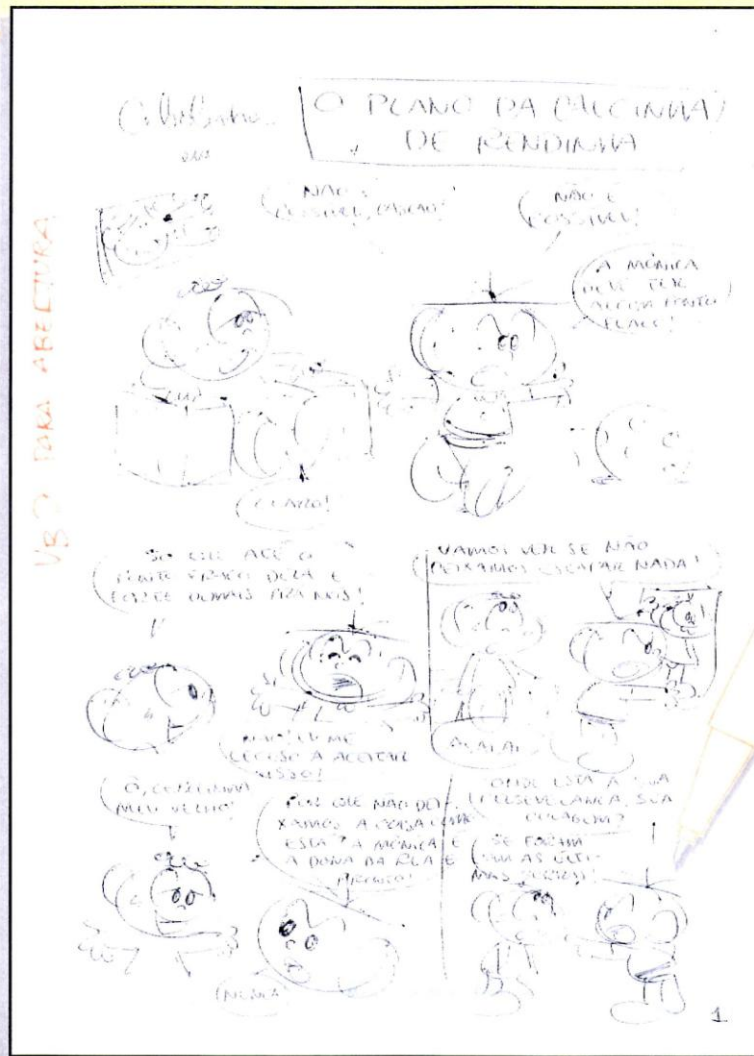 Cebolinha
em
O PLANO DA CALCINHA
DE RENDINHA
VB? PARA ABERTURA
NÃO É
POSSÍVEL, CASCÃO!
NÃO É
POSSÍVEL!
A MÔNICA
DEVE TER
ALGUM PONTO
FLACO!
CLARO!
SÓ QUE ATÉ O
PONTO FRACO DELA É
FORTE DEMAIS PRA NÓS!
NÃO! EU ME
RECUSO A ACEITAR
ISSO!
VAMOS VER SE NÃO
DEIXAMOS ESCAPAR NADA!
AI, AI, AI
Ô, CEBOLINHA
MEU VELHO!
POR QUE NÃO DEI-
XAMOS A COISA COMO
ESTÁ? A MÔNICA É
A DONA DA RUA E
PRONTO!
NUNCA!
ONDE ESTÁ A SUA
PERSEVELANÇA, SUA
SE FORAM
COM AS ÚLTI-
MAS SURRAS!
1